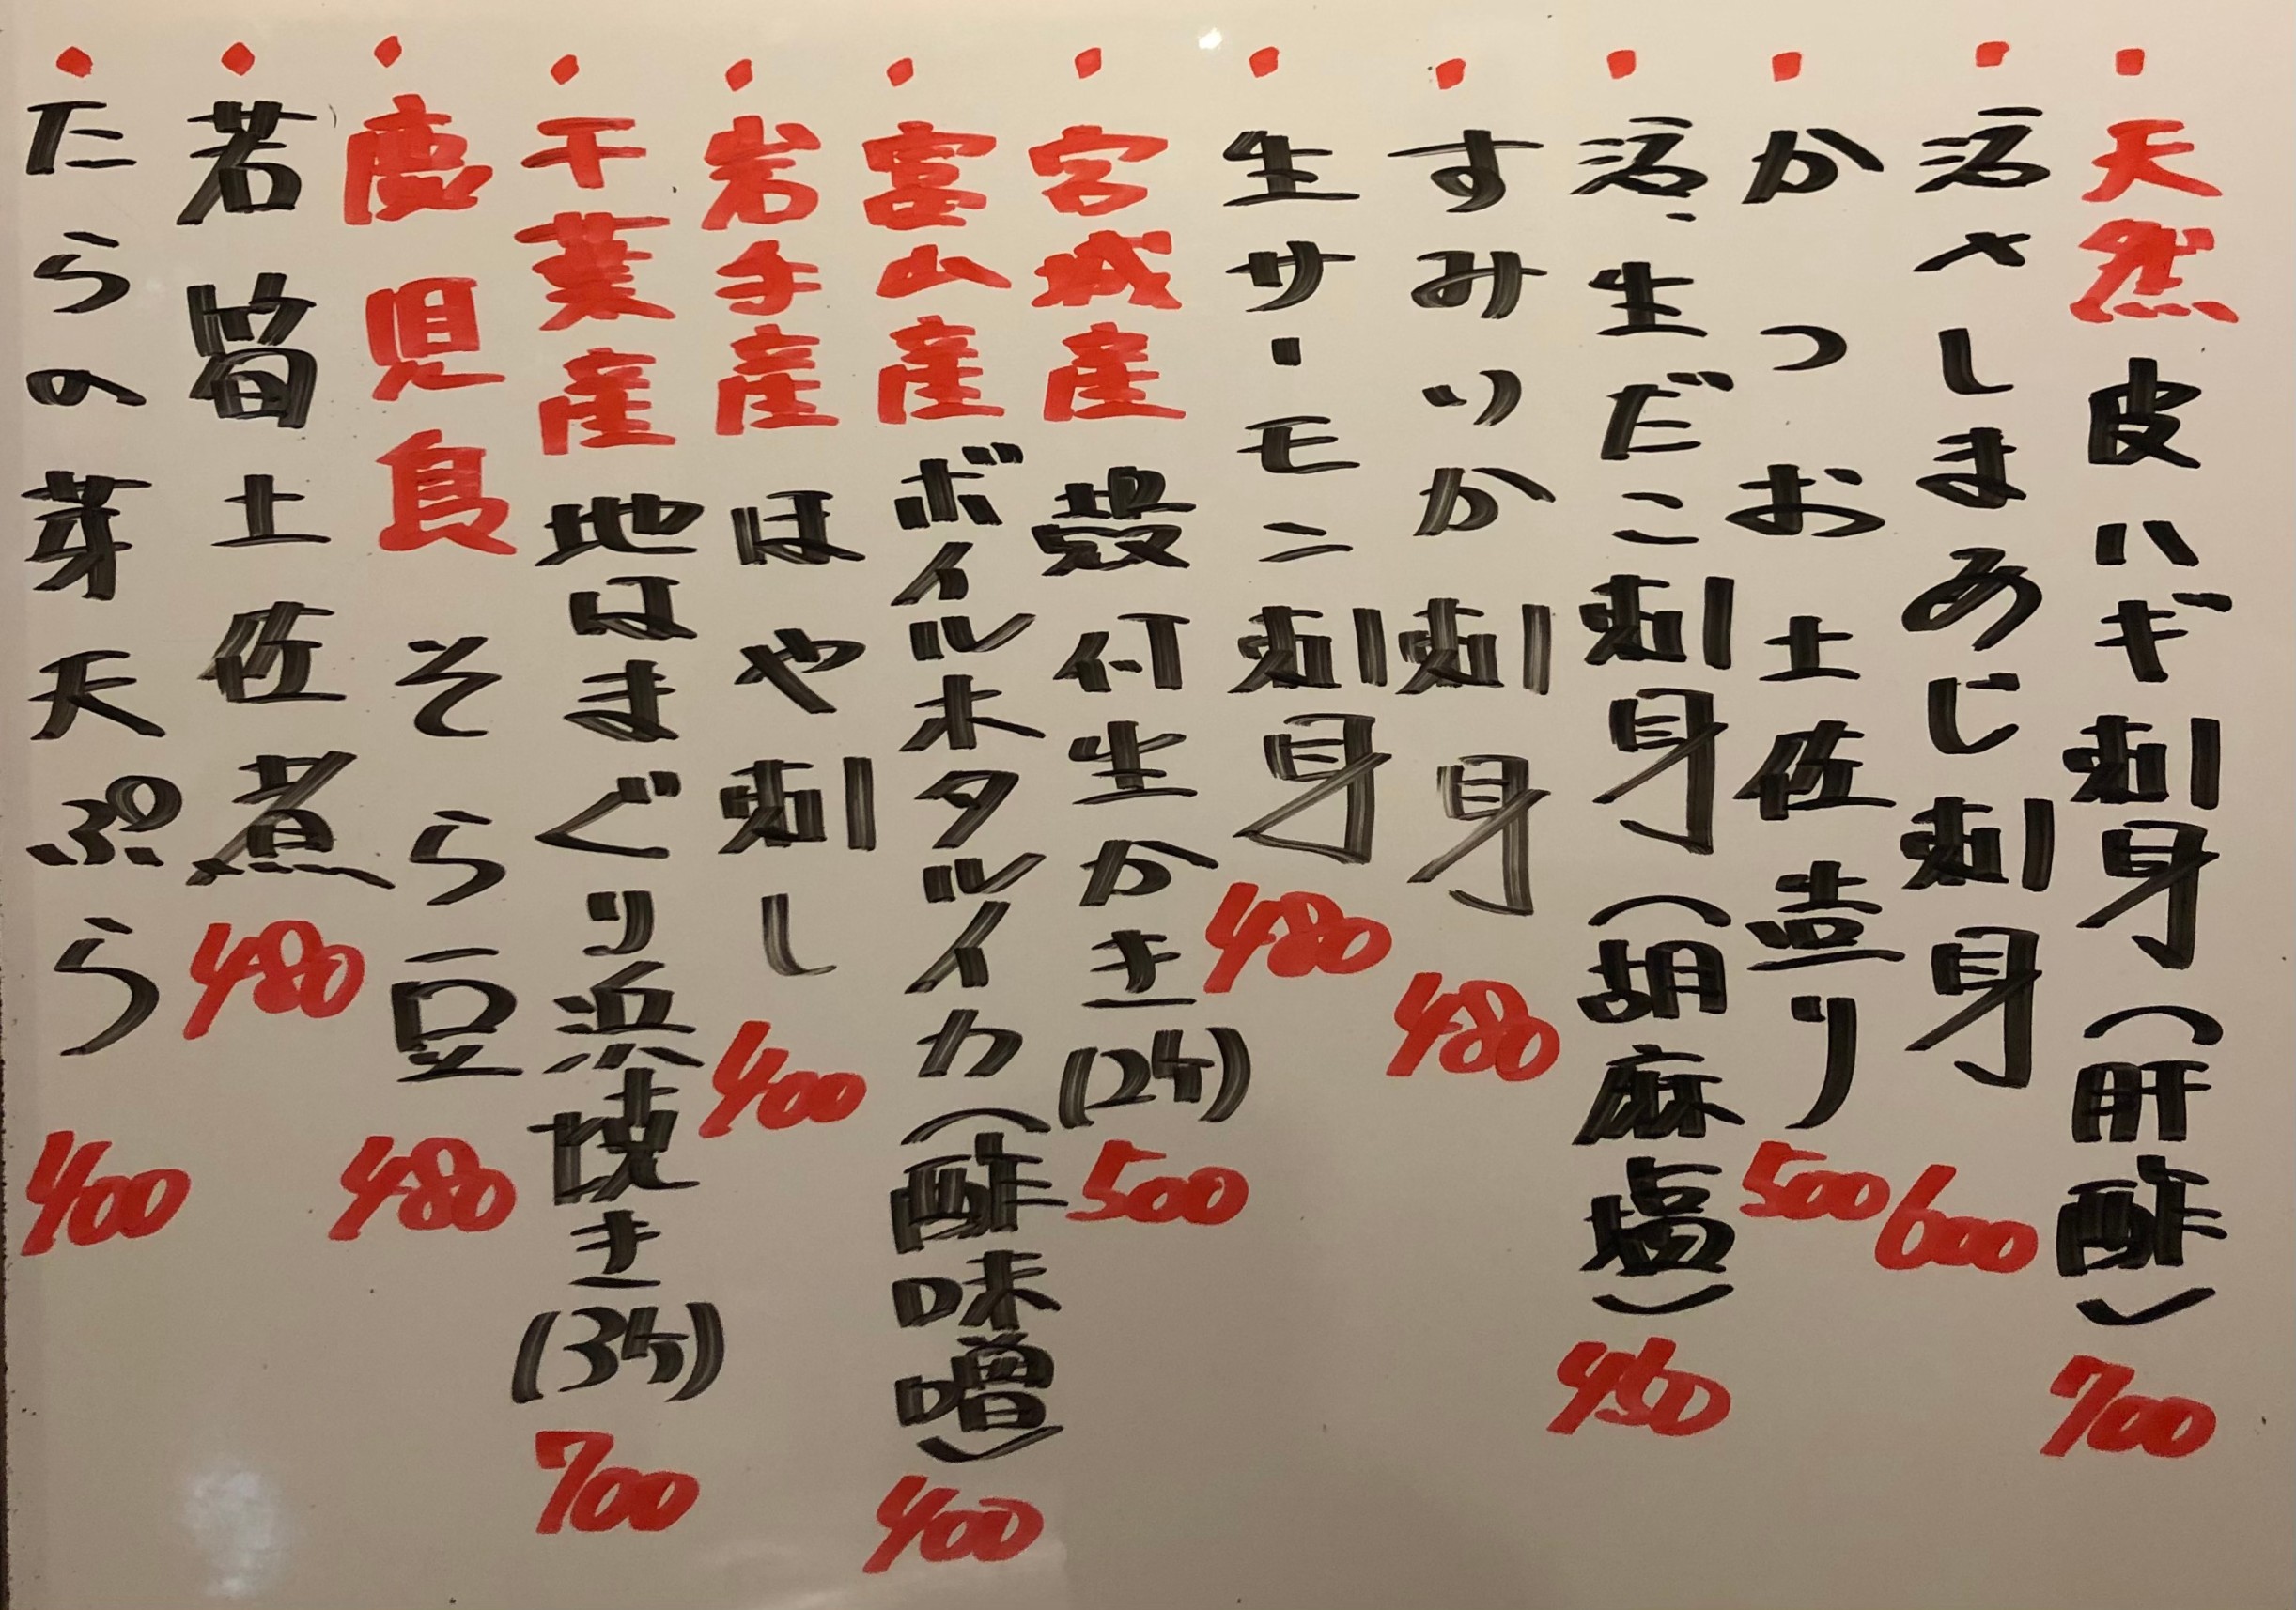 ・天然皮ハギ刺身(肝酢)700
・活〆しまあじ刺身600
・かつお土佐造り500
・活、生だこ刺身(胡麻塩)450
・すみいか刺身480
・生サーモン刺身480
・宮城産殻付生かき(2ケ)500
・富山産ボイルホタルイカ(酢味噌)400
・岩手産ほや刺し400
・千葉産地はまぐり浜焼き(3ケ)700
・鹿児島そら豆480
・若筍土佐煮480
・たらの芽天ぷら400